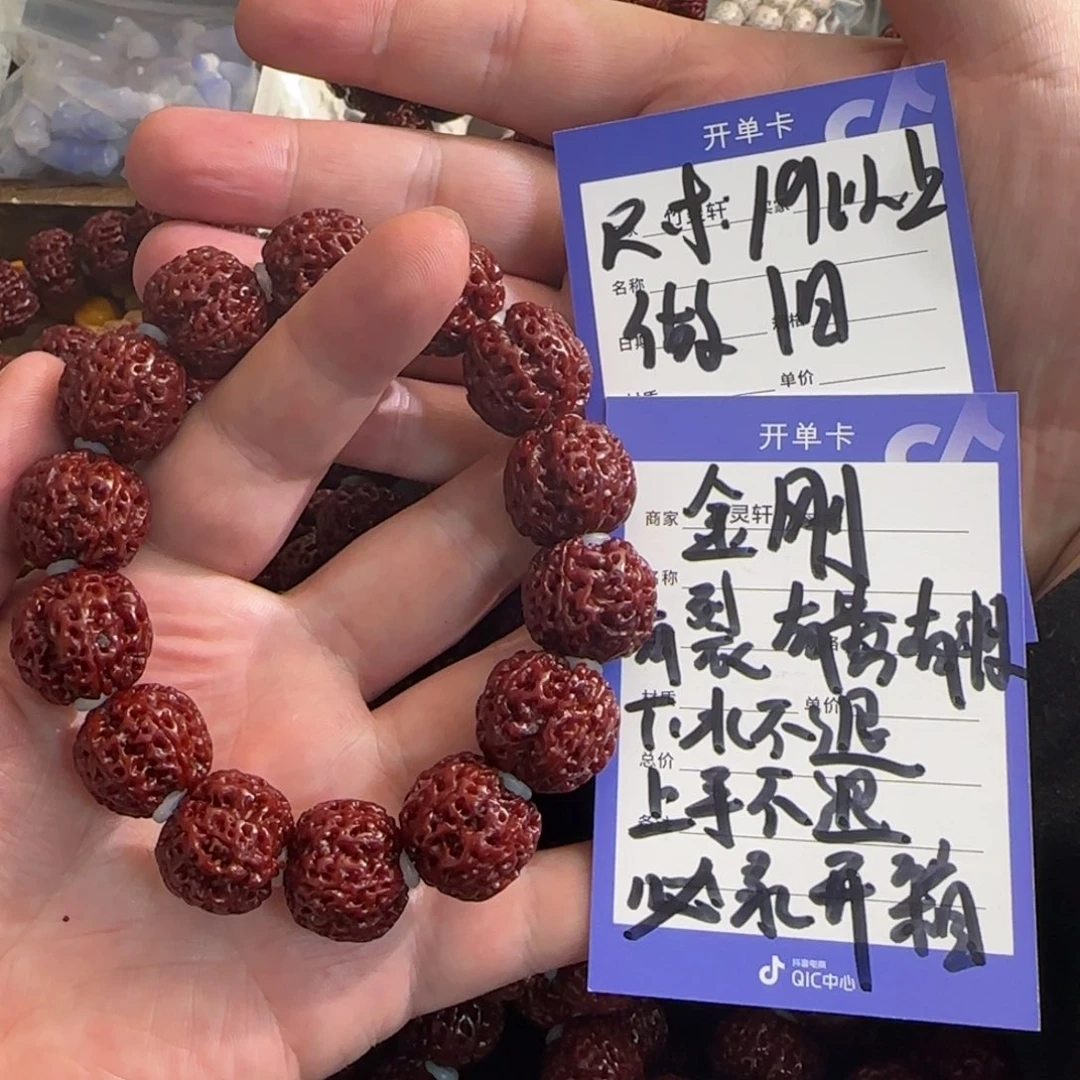 开单卡
竹灵轩
尺寸:19以上
名称
做旧
单价
开单卡
商家 灵轩
金刚
名称
有裂 有营有胶
材质 单价
下水不退
总价
上手不退
必录开箱
抖音电商
QIC中心